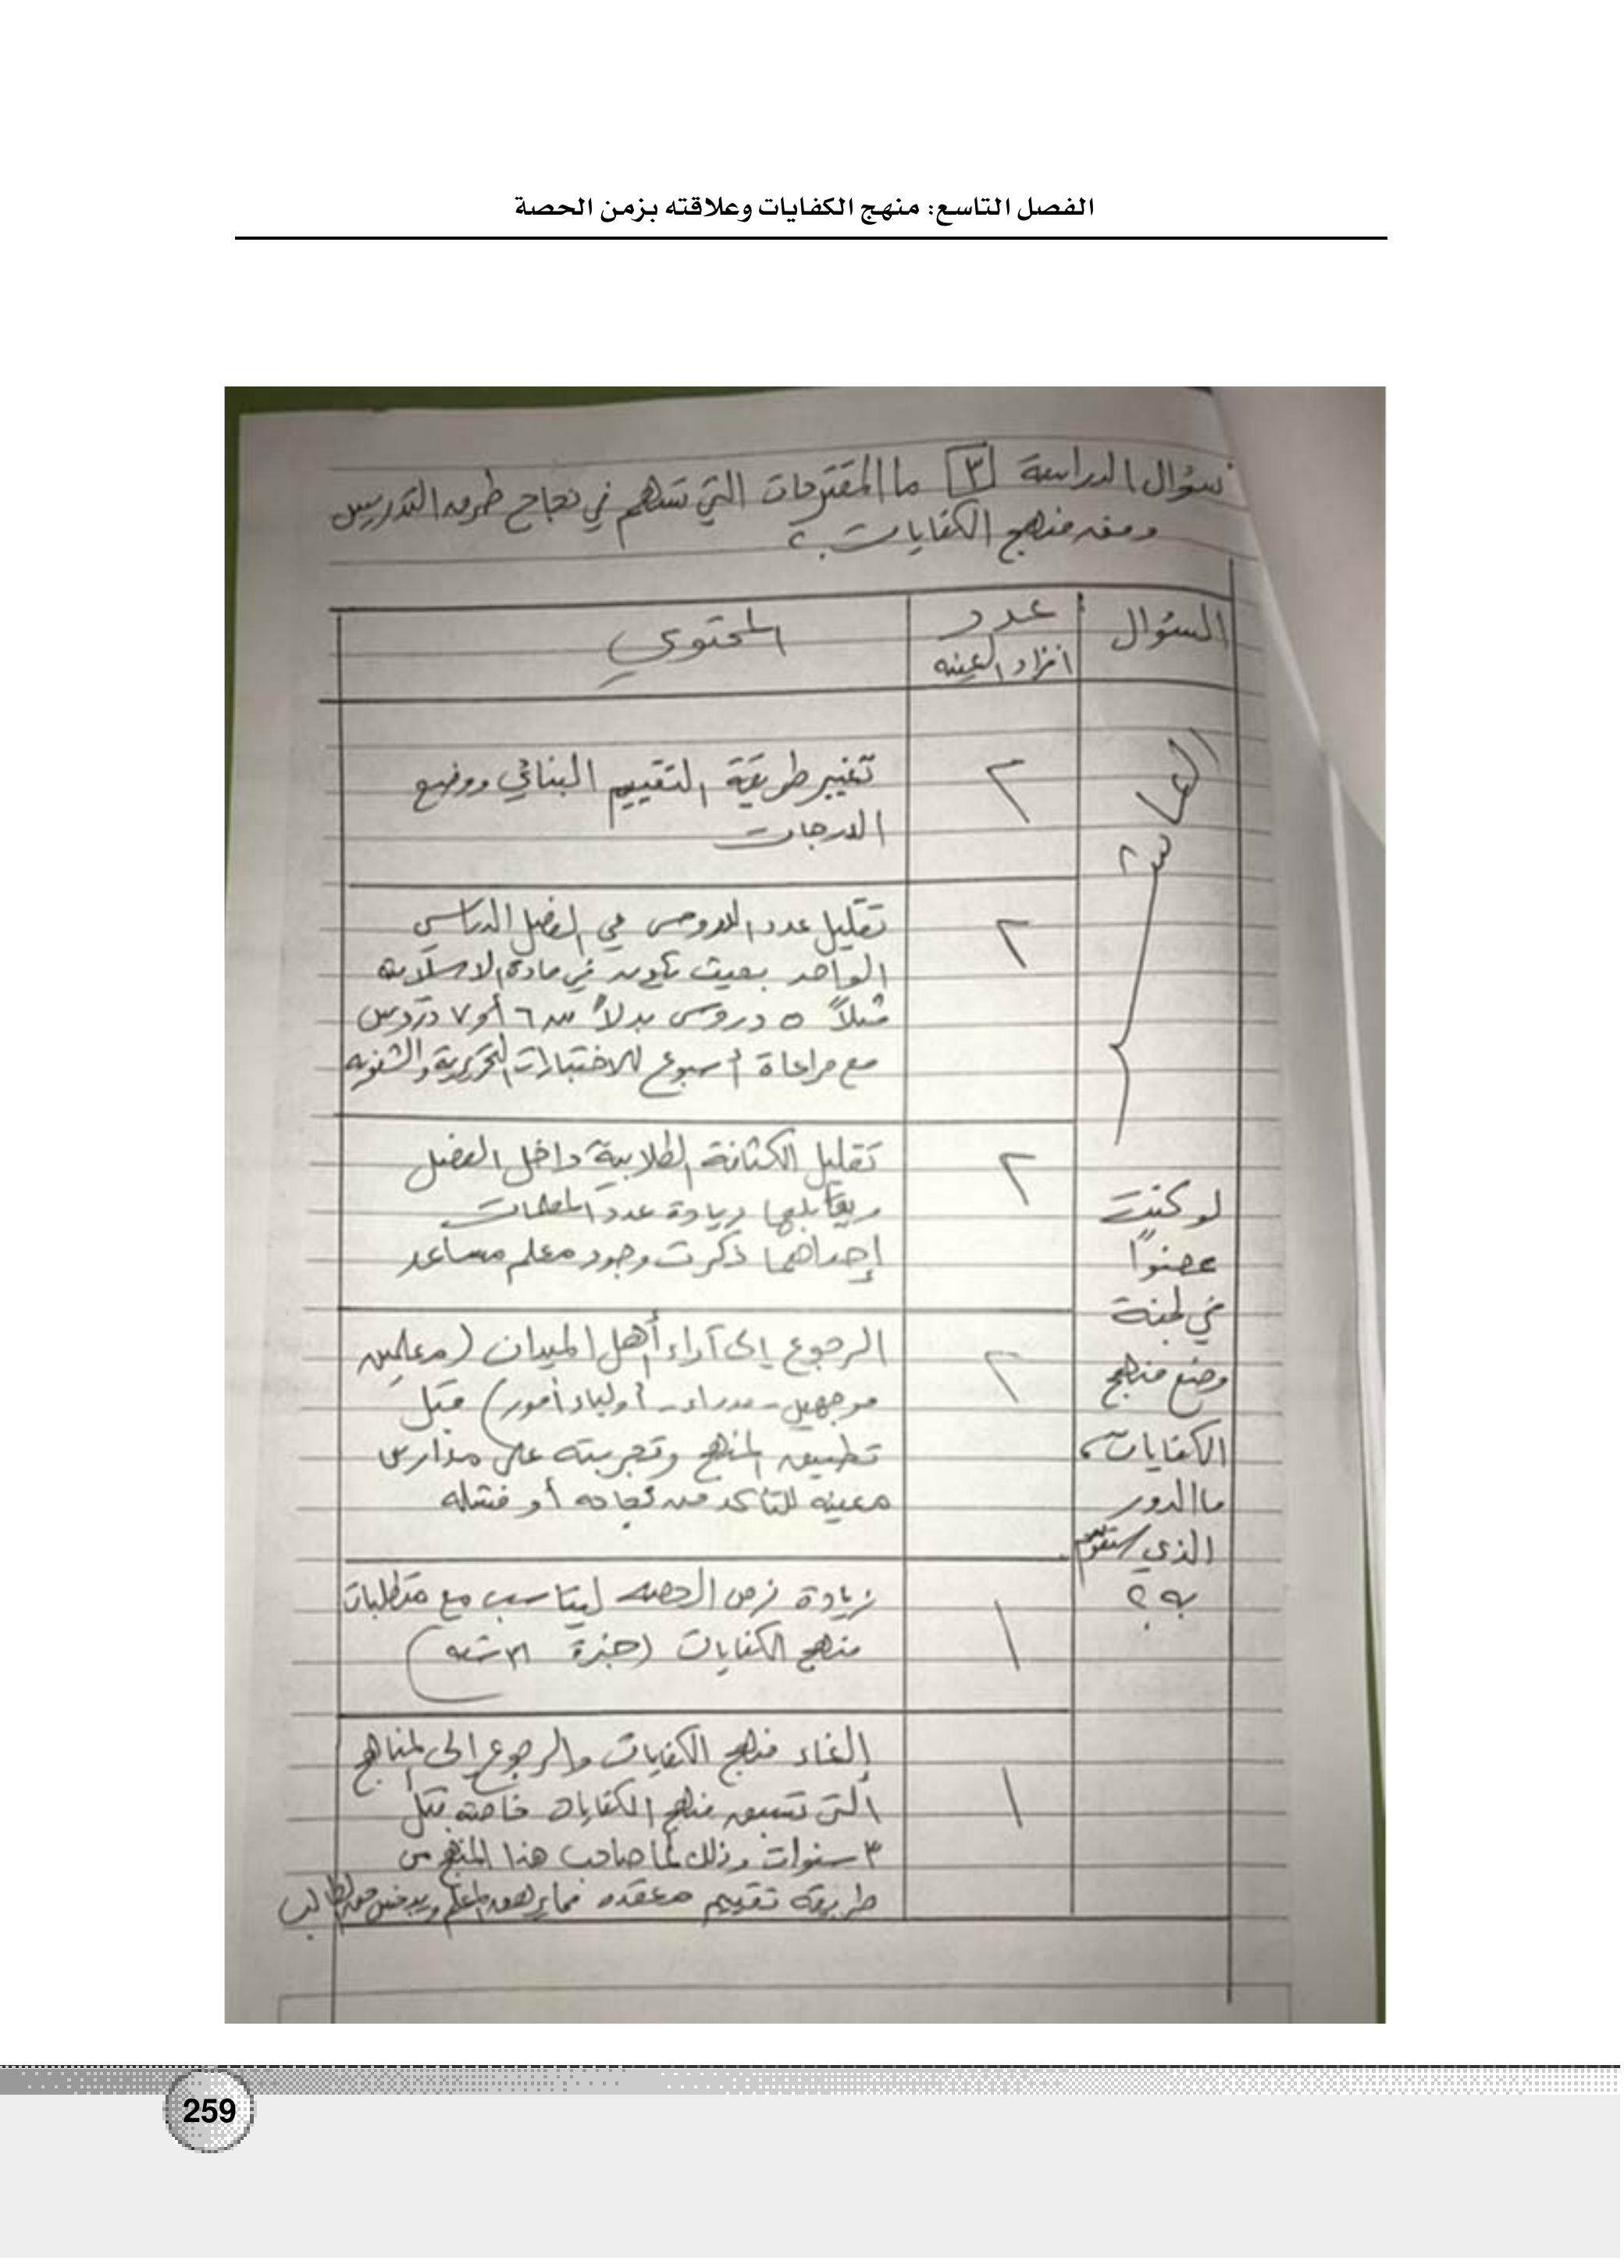 الفصل التاسع: منهج الكفايات وعلاقته بزمن الحصة
سؤال الدراسة ٣ ما المقترحات التي تسهم في نجاح طرق التدريس
وفق منهج الكفايات؟
السؤال
عدد
أفراد العينه
المحتوى
س٢
لو كنت
عضواً
في لجنة
وضع منهج
الكفايات،
ما الدور
الذي ستقوم
به؟
٢
تغيير طريقة التقييم البنائي ووضع
الدرجات
٢
تقليل عدد الدروس في الفصل الدراسي
الواحد بحيث تكون في مادة الاسلامية
مثلاً ٥ دروس بدلاً من ٦ أو ٧ دروس
مع مراعاة أسبوع للاختبارات التحريرية والشفويه
٢
تقليل الكثافة الطلابية داخل الفصل
ويقابلها زيادة عدد المعلمات
إحداهما ذكرت وجود معلم مساعد
٢
الرجوع إلى آراء أهل الميدان (معلمين
موجهين - مدراء - أولياء أمور) قبل
تطبيق المنهج وتجربته على مدارس
معينه للتأكد من نجاحه أو فشله
١
زيادة زمن الحصه ليتناسب مع متطلبات
منهج الكفايات (خبرة ٣١ سنه)
١
إلغاء منهج الكفايات والرجوع إلى المناهج
التى تسبق منهج الكفايات خاصة قبل
٣ سنوات وذلك لما صاحب هذا المنهج من
طريقه تقييم معقده مما يرهق المعلم ويبخس حق الطالب
259